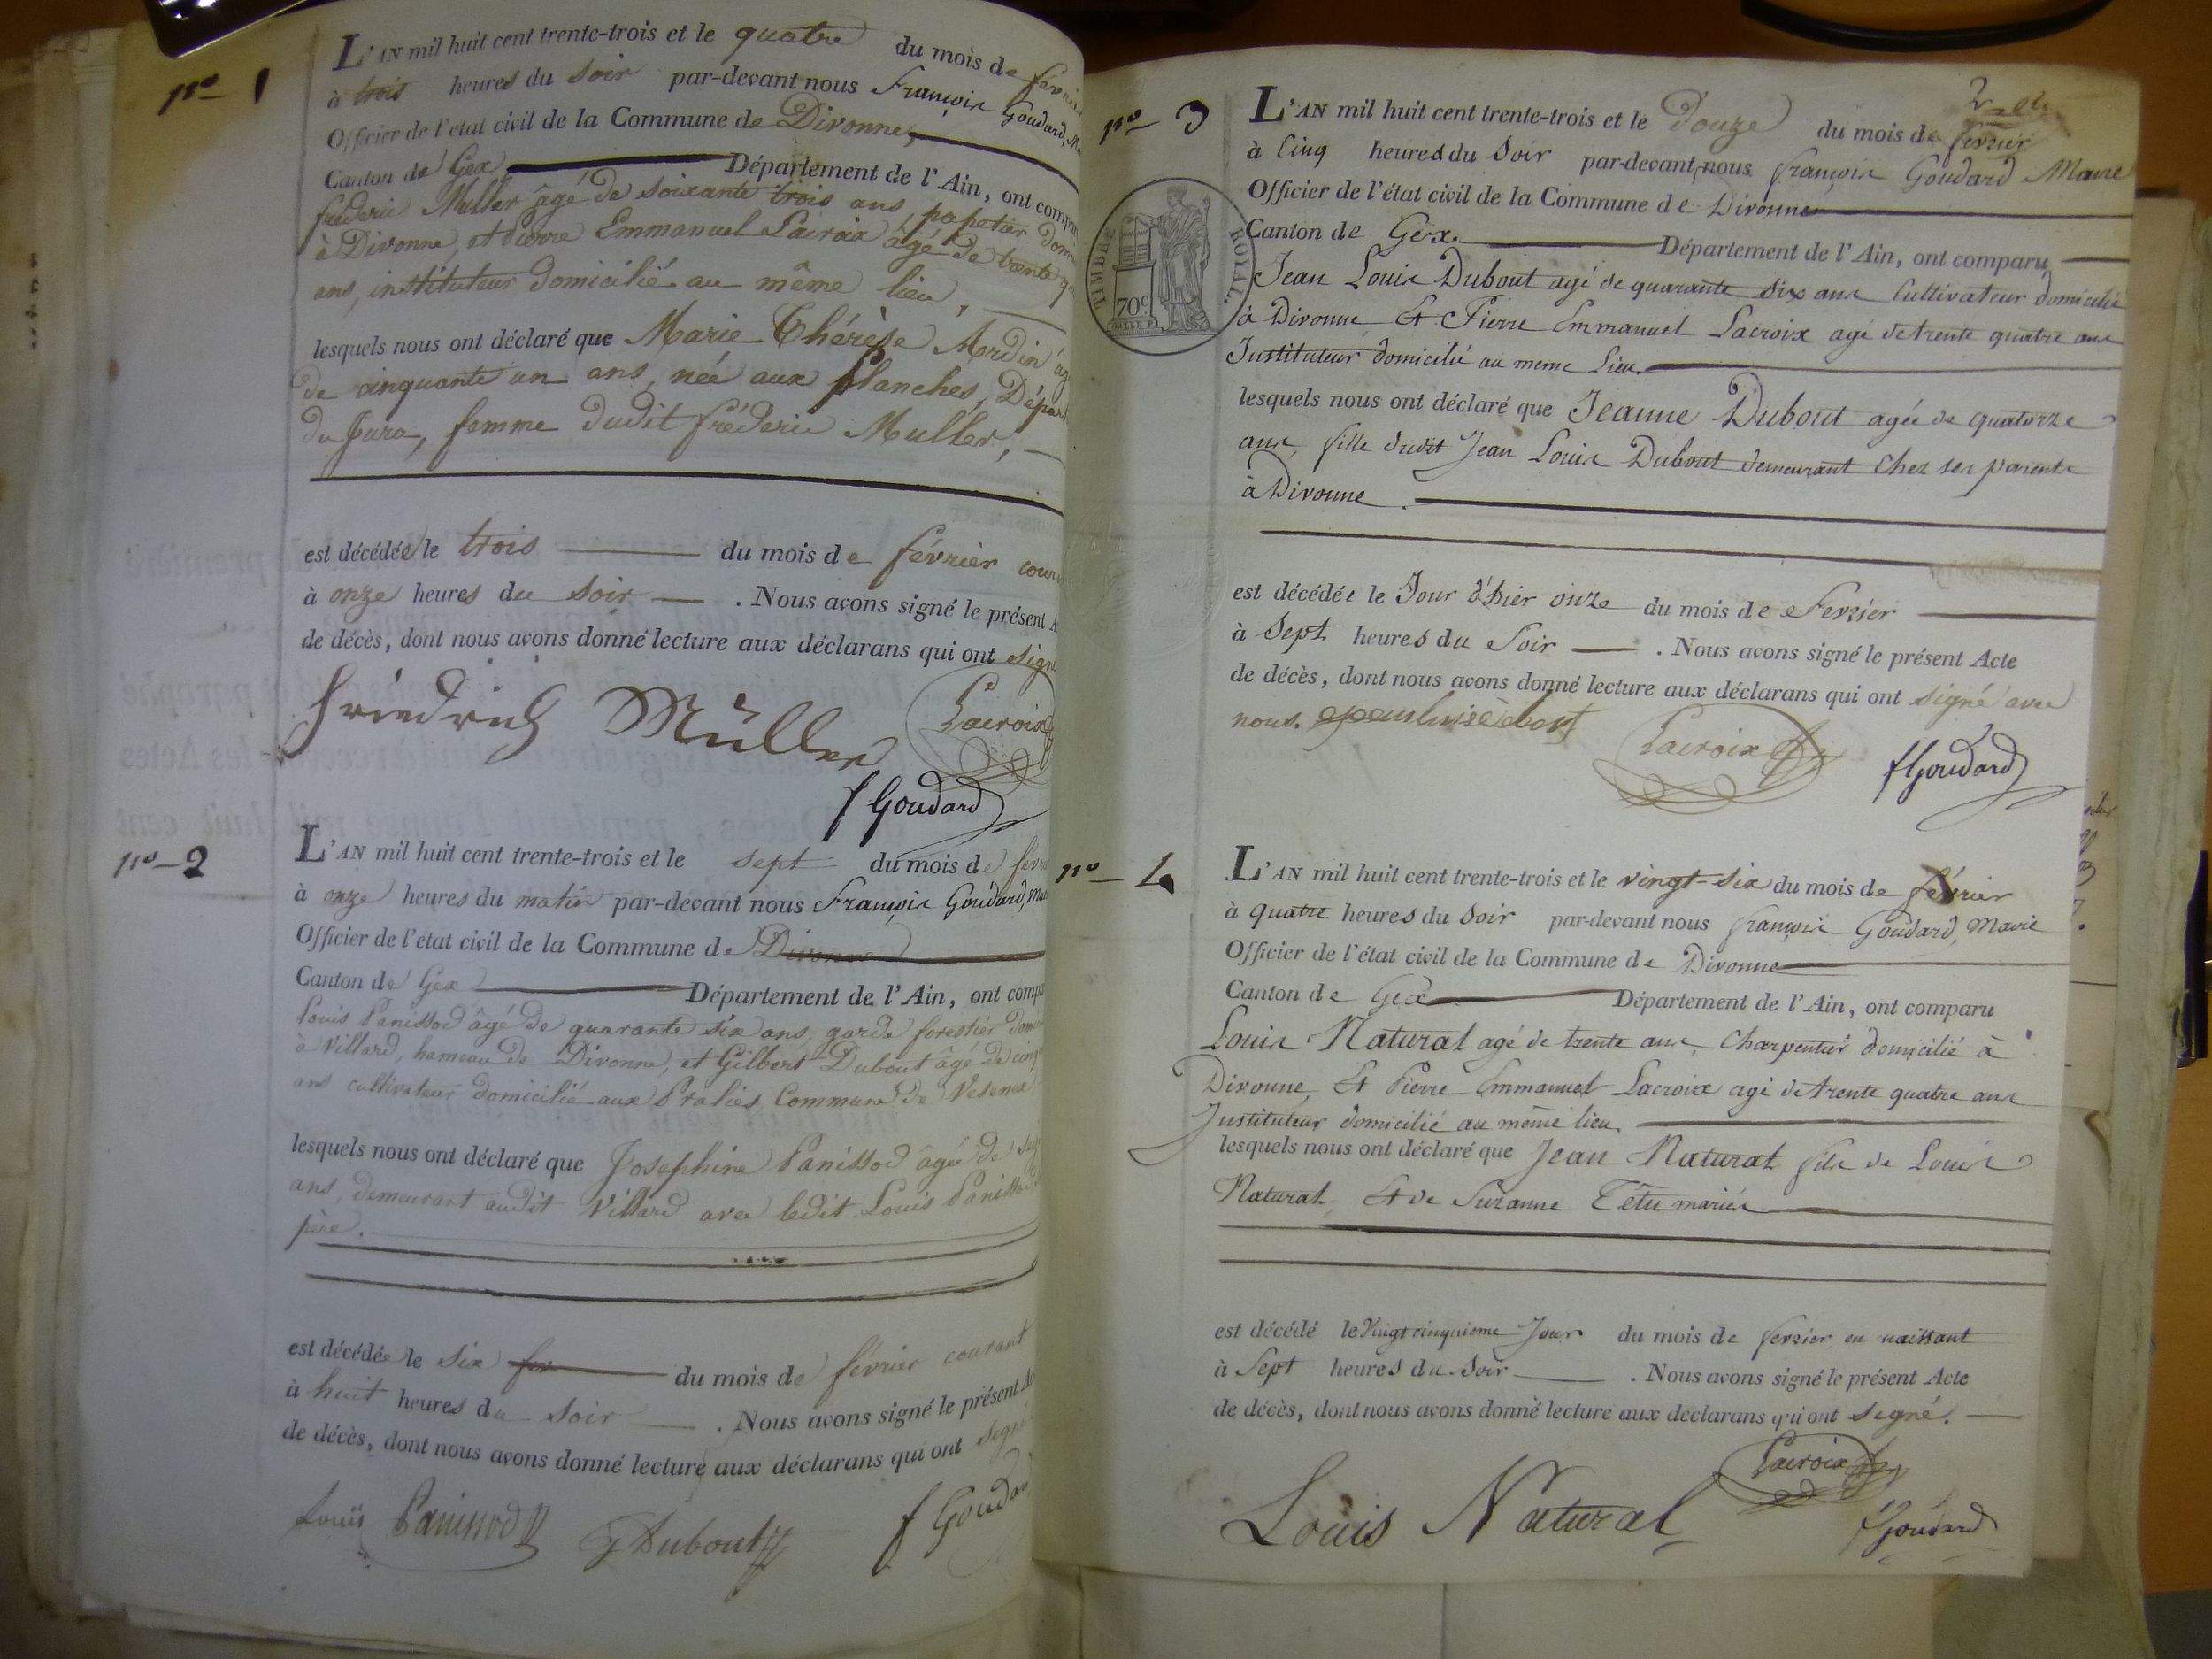 n° 1
L'AN mil huit cent trente-trois et le quatre du mois de février
à trois heures du soir par-devant nous François Goudard,
Officier de l'état civil de la Commune de Divonne,
Canton de Gex Département de l'Ain, ont
fréderic Muller âgé de soixante trois ans, papetier
à Divonne, et Pierre Emmanuel Lacroix âgé de trente
ans, instituteur domicilié au même lieu.
lesquels nous ont déclaré que Marie Thérèse
de cinquante un ans, née aux planches,
du Jura, femme dudit fréderic Muller,
est décédée le trois du mois de février
à onze heures du soir . Nous avons signé le présent
de décès, dont nous avons donné lecture aux déclarans qui ont
Friedrich Müller Lacroix
f Goudard
n° 2
L'AN mil huit cent trente-trois et le sept du mois de
à onze heures du matin par-devant nous François Goudard,
Officier de l'état civil de la Commune de Divonne
Canton de Gex Département de l'Ain, ont
Louis Panissod âgé de quarante six ans, garde forestier
à Villard, hameau de Divonne, et Gilbert Dubout âgé de
ans cultivateur domicilié aux Commune de
lesquels nous ont déclaré que Josephine Panissod âgée de
ans, demeurant audit Villard avec ledit Louis
père.
est décédée le six du mois de février courant
à huit heures du soir . Nous avons signé le présent
de décès, dont nous avons donné lecture aux déclarans qui ont
Louis Panissod Dubout f
2
n° 3
L'AN mil huit cent trente-trois et le douze du mois de fevrier
à Cinq heures du Soir par-devant nous françois Goudard Maire
Officier de l'état civil de la Commune de Divonne
Canton de Gex Département de l'Ain, ont comparu
TIMBRE ROYAL
70c
Jean Louis Dubout agé de quarante six ans Cultivateur domicilié
à Divonne Et Pierre Emmanuel Lacroix agé de trente quatre ans
Instituteur domicilié au meme Lieu.
lesquels nous ont déclaré que Jeanne Dubout agée de quatorze
ans, fille dudit Jean Louis Dubout demeurant chez ses parents
à Divonne.
est décédée le Jour d'hier onze du mois de Fevrier
à Sept heures du Soir . Nous avons signé le présent Acte
de décès, dont nous avons donné lecture aux déclarans qui ont signé avec
nous.
Lacroix fGoudard
n° 4
L'AN mil huit cent trente-trois et le vingt-six du mois de février
à quatre heures du Soir par-devant nous françois Goudard, Maire
Officier de l'état civil de la Commune de Divonne
Canton de Gex Département de l'Ain, ont comparu
Louis Natural agé de trente ans, Charpentier domicilié à
Divonne, Et Pierre Emmanuel Lacroix agé de trente quatre ans
Instituteur domicilié au même lieu.
lesquels nous ont déclaré que Jean Natural fils de Louis
Natural Et de Suzanne Tétu mariés
est décédé le Vingt cinquieme Jour du mois de fevrier en naissant
à Sept heures du Soir . Nous avons signé le présent Acte
de décès, dont nous avons donné lecture aux déclarans qui ont signé.
Lacroix
Louis Natural fGoudard